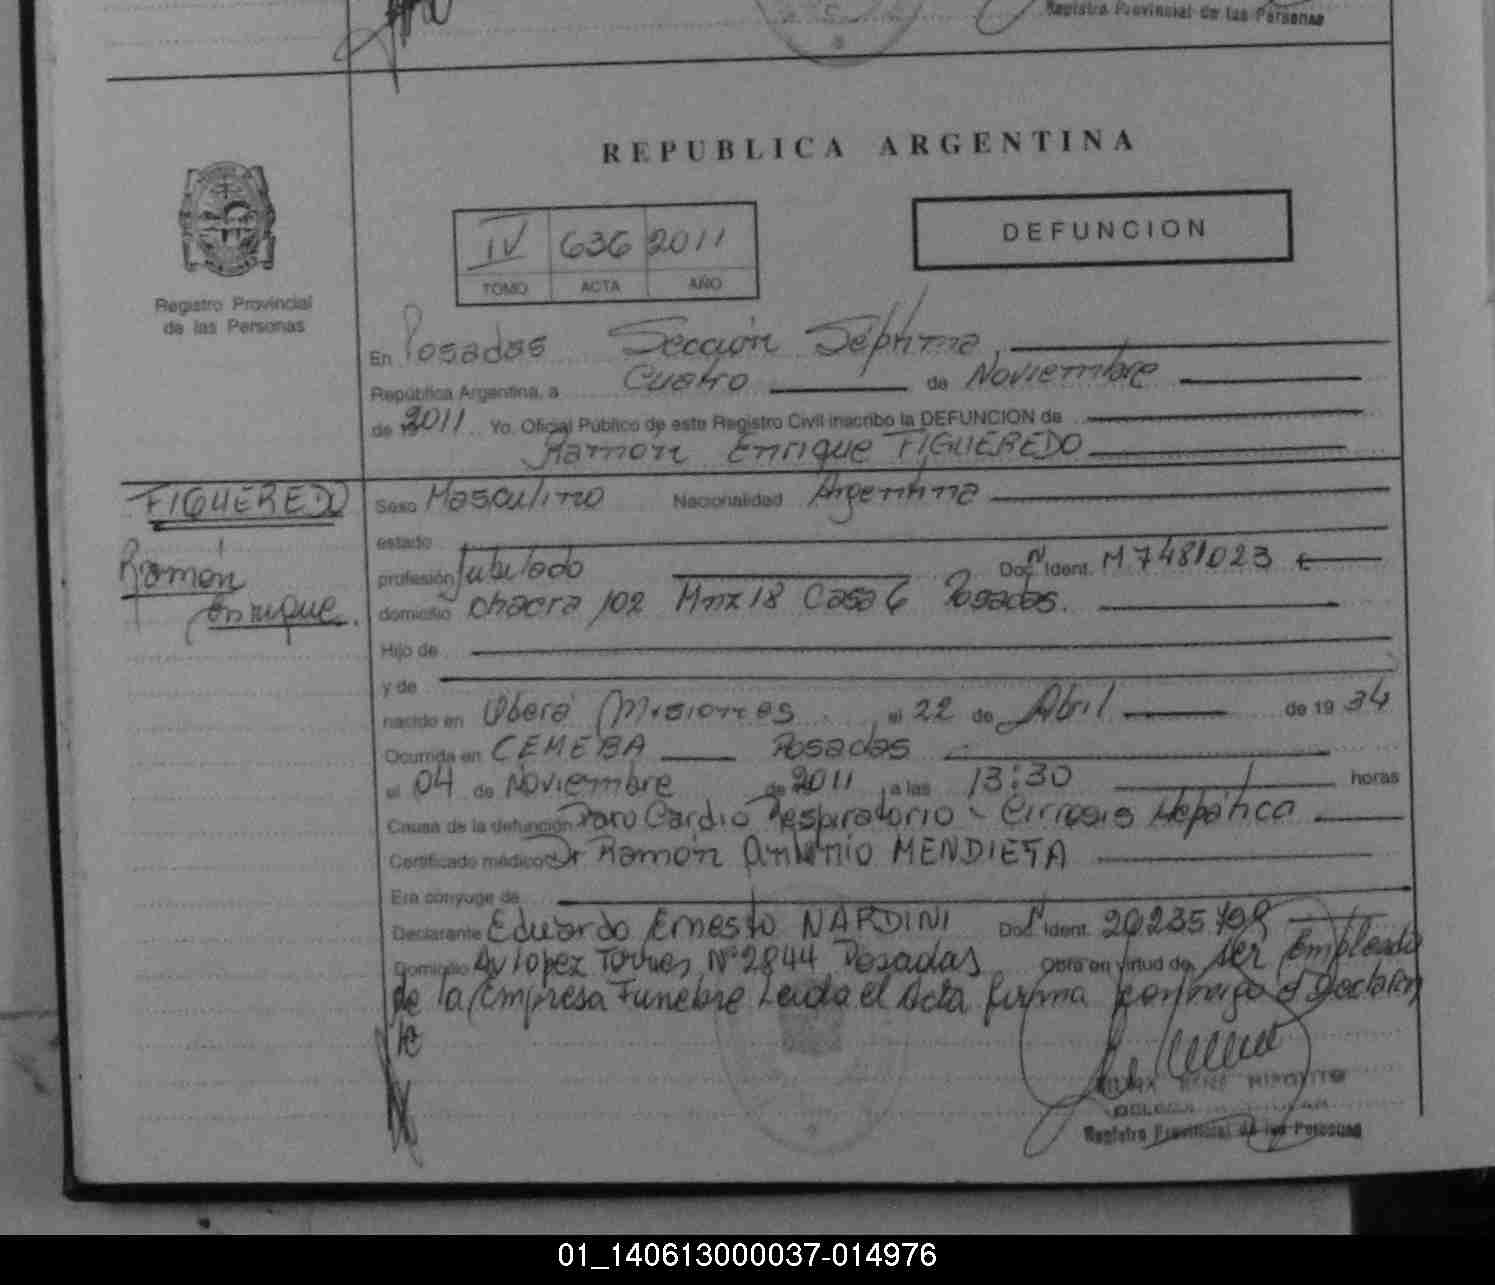 Registro Provincial de las Personas
REPUBLICA ARGENTINA
IV 636 2011
TOMO ACTA AÑO
DEFUNCION
Registro Provincial
de las Personas
En Posadas Sección Séptima,
República Argentina, a Cuatro de Noviembre
de 2011 Yo, Oficial Público de este Registro Civil inscribo la DEFUNCION de
Ramón Enrique FIGUEREDO
FIGUEREDO
Ramón
Enrique.
Sexo Masculino Nacionalidad Argentina
estado
profesión Jubilado Doc. N Ident. M 7481023
domicilio chacra 102 Mnz 18 Casa 6 Posadas.
Hijo de
y de
nacido en Oberá Misiones el 22 de Abril de 19 34
Ocurrida en CEMEBA Posadas
el 04 de Noviembre de 2011 a las 13:30 horas
Causa de la defunción Paro Cardio Respiratorio - Cirrosis Hepática
Certificado médico Dr Ramón Antonio MENDIETA
Era cónyuge de
Declarante Eduardo Ernesto NARDINI Doc. N Ident.
Domicilio Av Lopez Torres N° 2844 Posadas Obra en virtud de ser Empleado
de la Empresa Funebre Leida el Acta firma conmigo el Declaran
te
Registro Provincial de las Personas
01_140613000037-014976